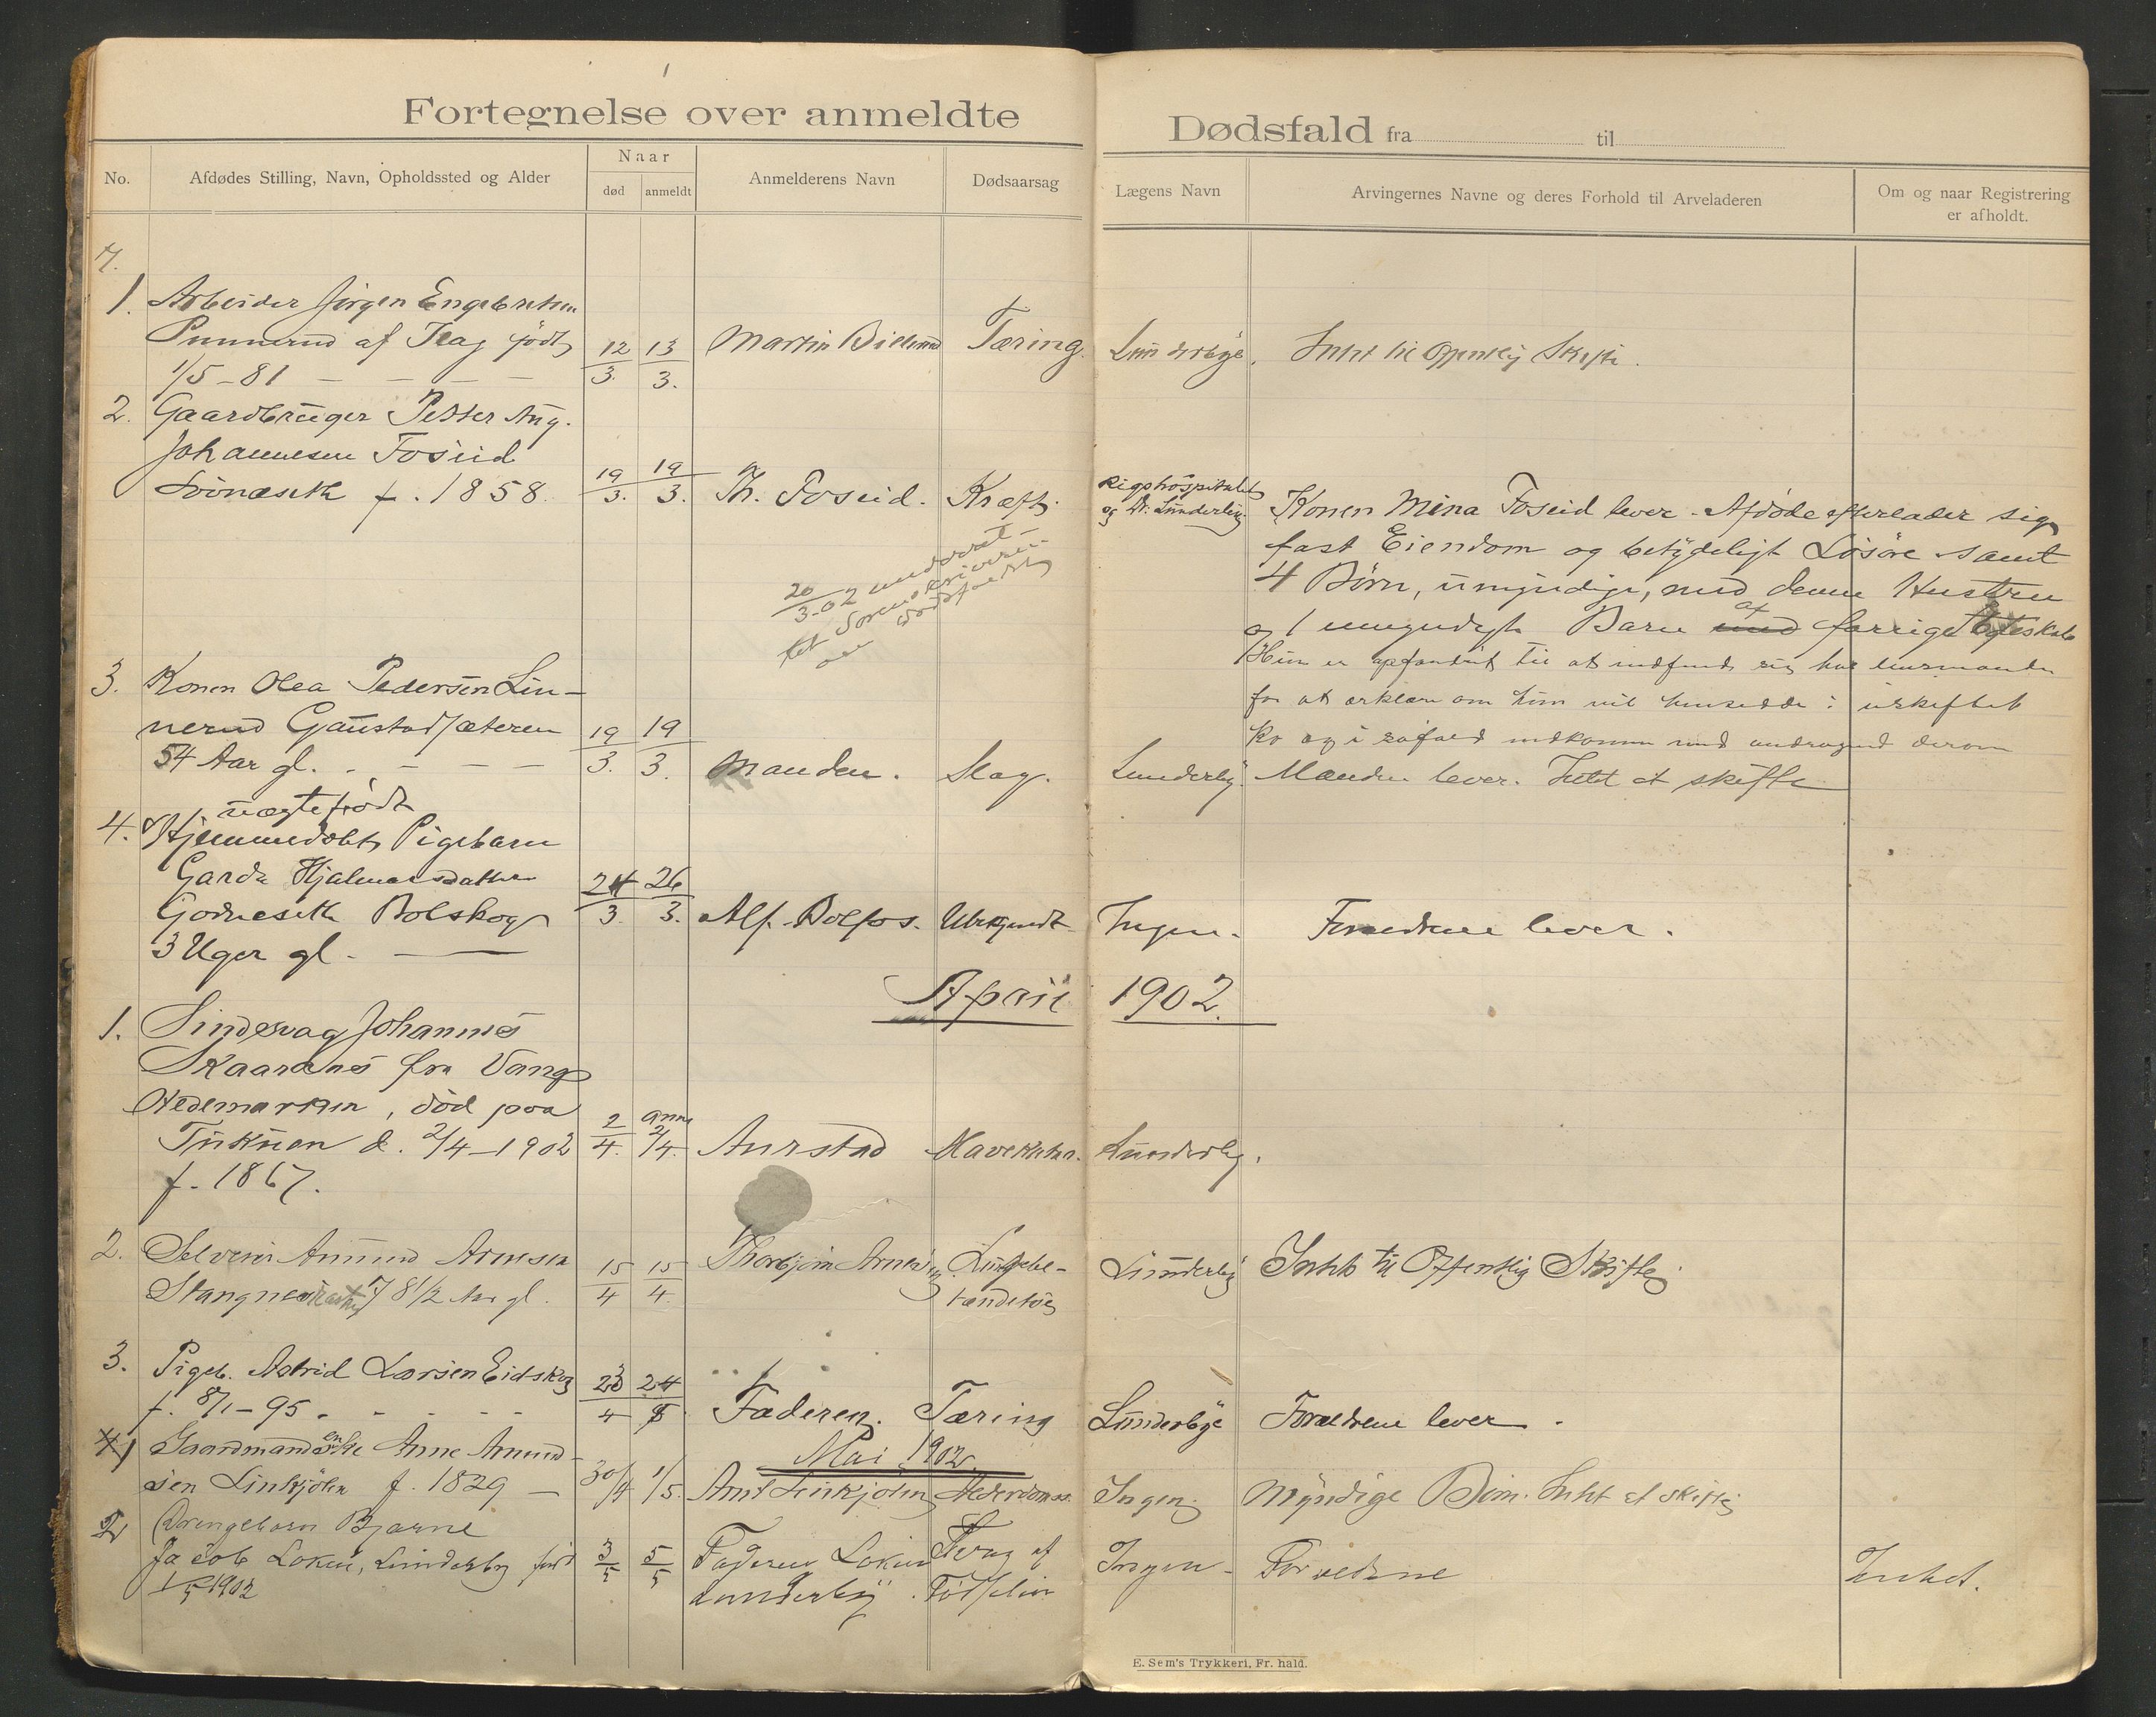 Fortegnelse over anmeldte Dødsfald fra til
No.
Afdødes Stilling, Navn, Opholdssted og Alder
Naar
død
anmeldt
Anmelderens Navn
Dødsaarsag
Lægens Navn
Arvingernes Navne og deres Forhold til Arveladeren
Om og naar Registrering
er afholdt.
1. Arbeider Jørgen Engebretsen
af født
1/5-81
12/3. 13/3.
Martin
Tæring
Lunderbye.
Intet til Offentlig Skifte.
2. Gaardbruger Petter Aug.
Johannesen Foseid
f. 1858.
19/3. 19/3.
Th. Foseid.
Kræft.
Rigshospitalet
og Dr. Lunderby
Konen Mina Foseid lever. Afdøde efterlader sig
fast Eiendom og betydeligt Løsøre samt
4 Børn, umyndige, med denne Hustru
og 1 umyndigt Barn med af forrige Ægteskab
Hun er til at sig hos
for at erklære om hun vil i uskiftet
Bo og i derom
20/3-02
3. Konen Olea Pedersen Lin-
nerud Gaustadsæteren
54 Aar gl.
19/3. 19/3.
Manden.
Slag.
Lunderby.
Manden lever. Intet at skifte
4. uægtefødt
Hjemmedøbt Pigebarn
Hjalmarsdatter
Bolskog
3 Uger gl.
24/3. 26/3.
Alf.
Ubekjendt
Ingen.
Forældrene lever.
April 1902.
1. Johannes
fra Vang
Hedemarken, død paa
d. 2/4-1902
f. 1867.
2/4. anm 2/4.
Aurstad
Lunderby.
2. Selveier Amund Arnesen
Stangnes 78 1/2 Aar gl.
15/4 15/4
Thorbjørn Arnesen
Lungebe-
tændelse
Lunderby
Intet til Offentlig Skifte
3. Pigeb. Astrid Larsen Eidskog
f. 8/1-95
23/4 24
Faderen.
Tæring
Lunderbye
Forældrene lever.
Mai 1902
1 Gaardmandsenke Anne Amund-
sen Linkjølen f. 1829
30/4 1/5.
Linkjølen
Ingen
Myndige Børn. Intet at skifte
2 Drengebarn Bjarne
Jacob Løken, Lunderby født
1/5 1902
3/5 5/5
Faderen Løken
Lunderby
af
Fødselen
Ingen
Forældrene
Intet.
E. Sem's Trykkeri, Fr. hald.